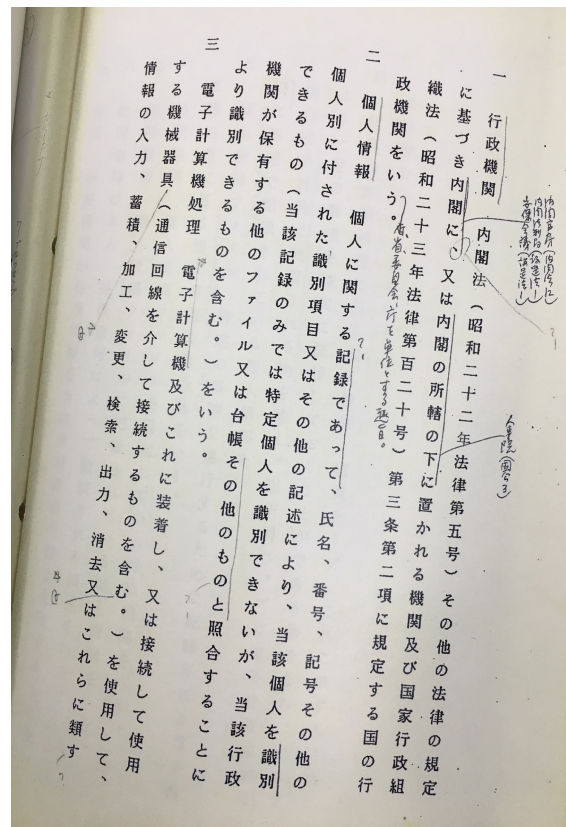 一 行政機関 内閣法(昭和二十二年法律第五号)その他の法律の規定
に基づき内閣に、又は内閣の所轄の下に置かれる機関及び国家行政組
織法(昭和二十三年法律第百二十号)第三条第二項に規定する国の行
政機関をいう。
二 個人情報 個人に関する記録であって、氏名、番号、記号その他の
個人別に付された識別項目又はその他の記述により、当該個人を識別
できるもの(当該記録のみでは特定個人を識別できないが、当該行政
機関が保有する他のファイル又は台帳その他のものと照合することに
より識別できるものを含む。)をいう。
三 電子計算機処理 電子計算機及びこれに装着し、又は接続して使用
する機械器具(通信回線を介して接続するものを含む。)を使用して、
情報の入力、蓄積、加工、変更、検索、出力、消去又はこれらに類す